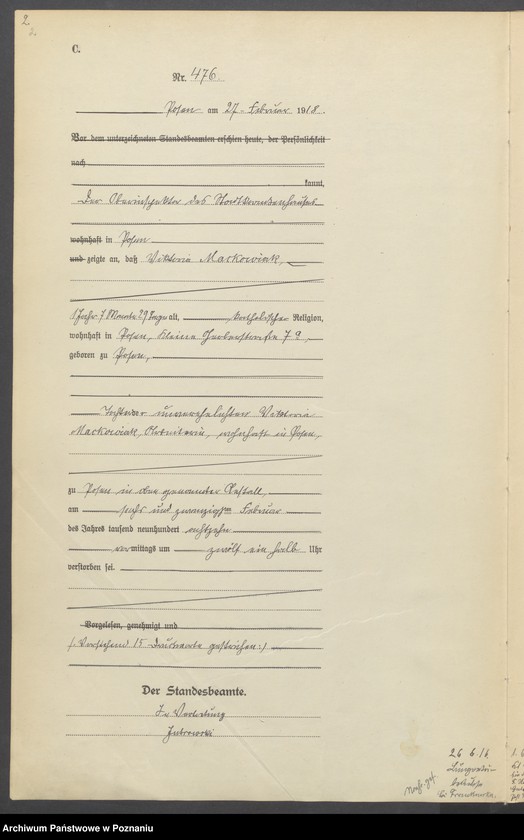 2.
2.
C.
Nr. 476.
Posen am 27. Februar 1918.
Vor dem unterzeichneten Standesbeamten erschien heute, der Persönlichkeit
nach
kannt,
Der Oberinspektor des Stadtkrankenhauses
wohnhaft in Posen
und zeigte an, daß Viktoria Markowiak,
1 Jahr 7 Monate 29 Tage alt, katholischer Religion,
wohnhaft in Posen, Kleine Gerberstraße 7a,
geboren zu Posen,
Tochter der unverehelichten Viktoria
Markowiak, Arbeiterin, wohnhaft in Posen,
zu Posen in oben genannter Anstalt,
am sechs und zwanzigsten Februar
des Jahres tausend neunhundert achtzehn
vormittags um zwölf ein halb Uhr
verstorben sei.
Vorgelesen, genehmigt und
/: Vorstehend 15 Druckworte gestrichen :/
Der Standesbeamte.
In Vertretung
26 6 16
Archiwum Państwowe w Poznaniu